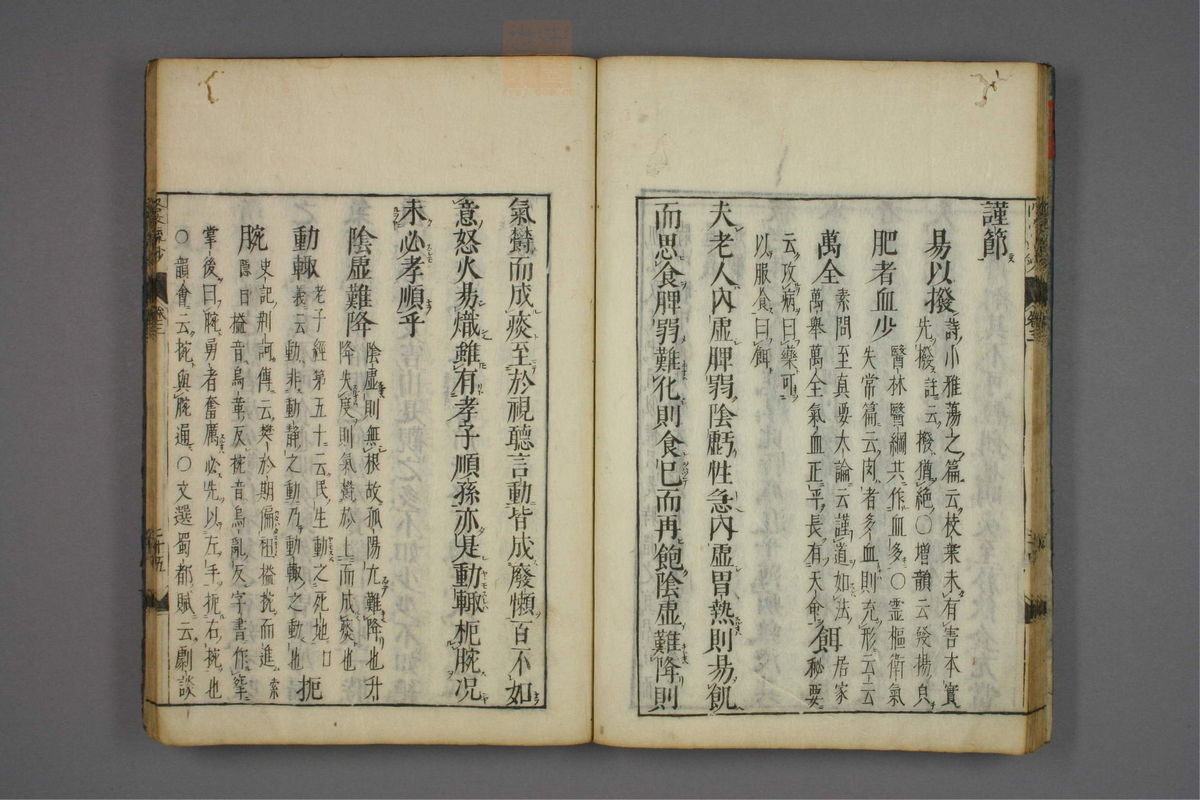 謹節
易以撥 詩小雅蕩之篇云枝葉未有害本實
先撥註云撥猶絶○増韻云發揚良
肥者血少 醫林醫綱共作血多○霊樞衛氣
失常篇云肉者多血則充形云云
萬全 素問至真要大論云謹道如法
萬舉萬全氣血正平長有天命 餌 居家
秘要
云攻病曰藥可
以服食曰餌
夫老人内虚脾弱陰虧性急内虚胃熱則易飢
而思食脾弱難化則食已而再飽陰虚難降則
氣欝而成痰至於視聴言動皆成廢懶百不如
意怒火易熾雖有孝子順孫亦是動輙扼腕况
未必孝順乎
陰虚難降 陰虚則無根故孤陽亢難降也升
降失度則氣欝於上而成痰也
動輙 老子經第五十云民生動之死地口
義云動非動静之動乃動輙之動也 扼
腕 史記荊軻傳云樊於期偏袒搤捥而進索
隠曰搤音烏革反捥音烏亂反字書作掔
掌後曰腕勇者奮厲必先以左手扼右捥也
○韻會云捥與腕通○文選蜀都賦云劇談
二十五